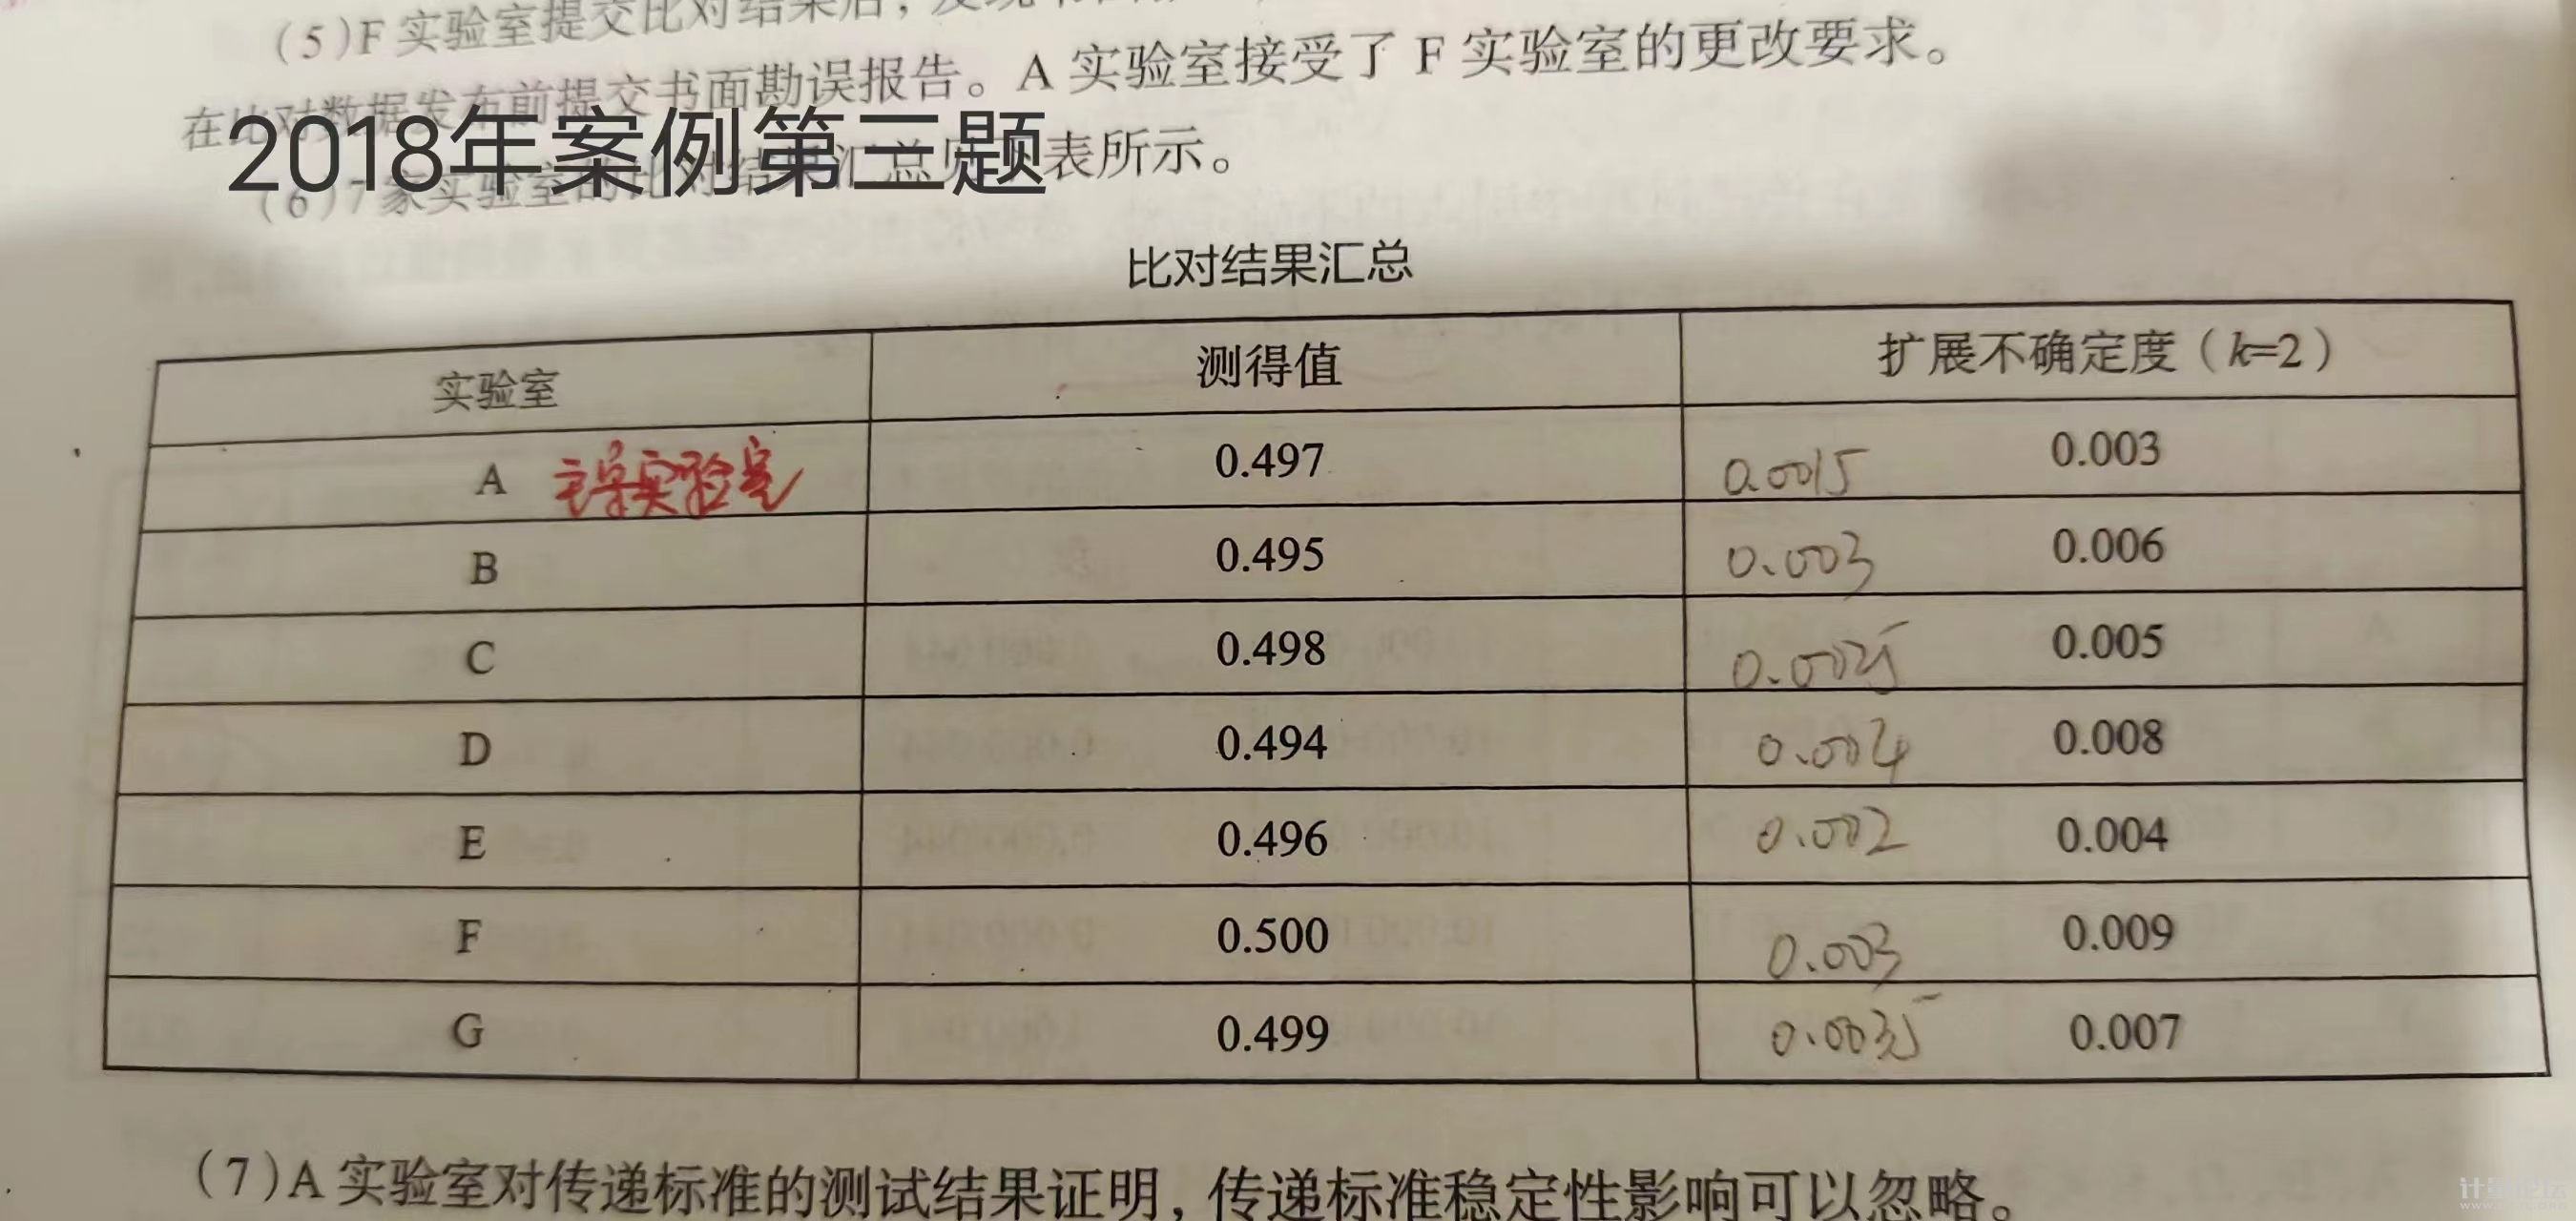 (5)F 实验室提交比对结果后，发现
在比对数据发布前提交书面勘误报告。A 实验室接受了 F 实验室的更改要求。
2018年案例第三题
(6)7家实验室的比对结果汇总见下表所示。
比对结果汇总
实验室 测得值 扩展不确定度（k=2）
A 主导实验室 0.497 0.0015 0.003
B 0.495 0.003 0.006
C 0.498 0.0025 0.005
D 0.494 0.004 0.008
E 0.496 0.002 0.004
F 0.500 0.003 0.009
G 0.499 0.0035 0.007
(7)A 实验室对传递标准的测试结果证明，传递标准稳定性影响可以忽略。
计量论坛